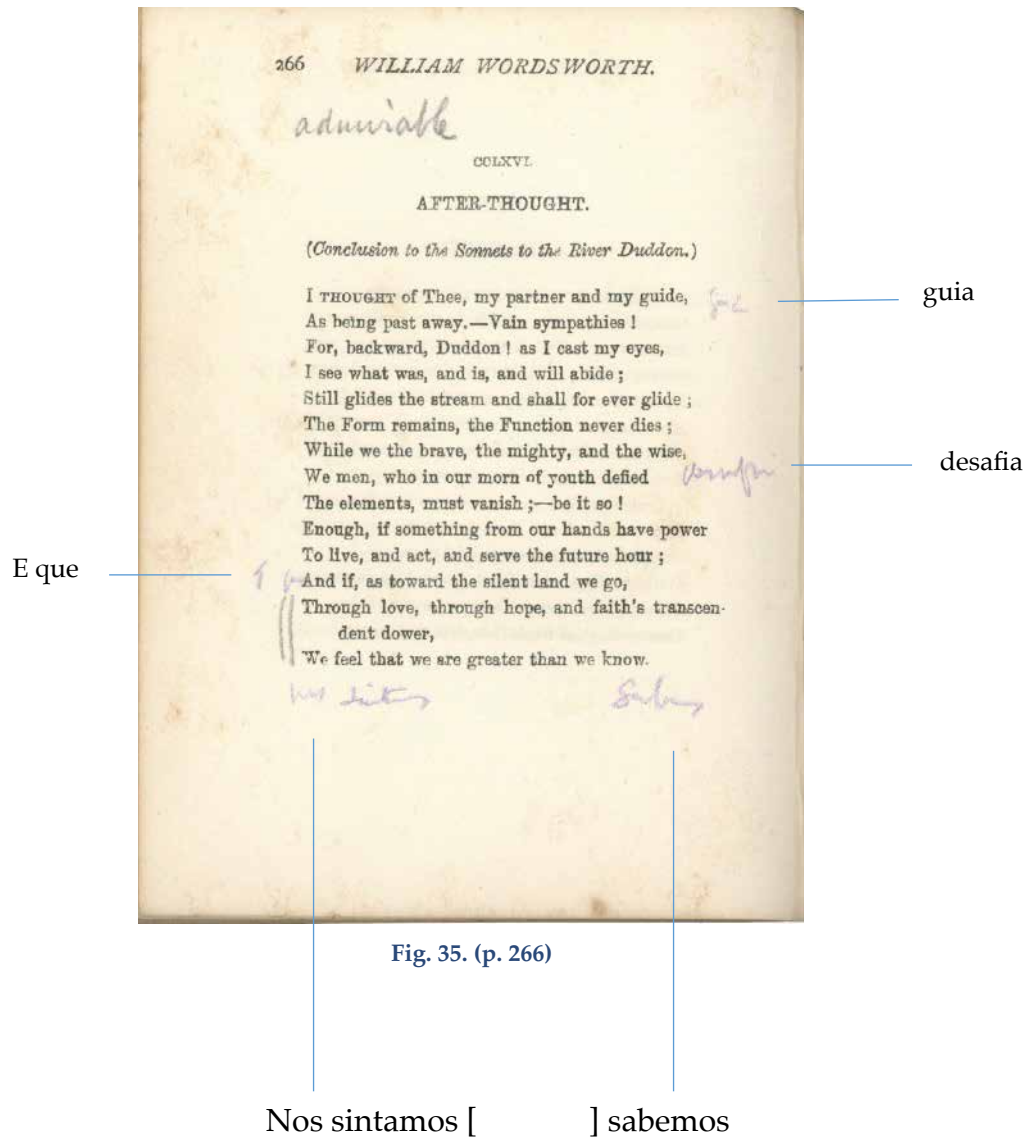 266 WILLIAM WORDSWORTH.
admirable
CCLXVI.
AFTER-THOUGHT.
(Conclusion to the Sonnets to the River Duddon.)
I THOUGHT of Thee, my partner and my guide,
guia
As being past away.—Vain sympathies !
For, backward, Duddon ! as I cast my eyes,
I see what was, and is, and will abide ;
Still glides the stream and shall for ever glide ;
The Form remains, the Function never dies ;
While we the brave, the mighty, and the wise,
desafia
We men, who in our morn of youth defied
The elements, must vanish ;—be it so !
Enough, if something from our hands have power
To live, and act, and serve the future hour ;
E que
And if, as toward the silent land we go,
Through love, through hope, and faith's transcen-
dent dower,
We feel that we are greater than we know.
Fig. 35. (p. 266)
Nos sintamos [ ] sabemos